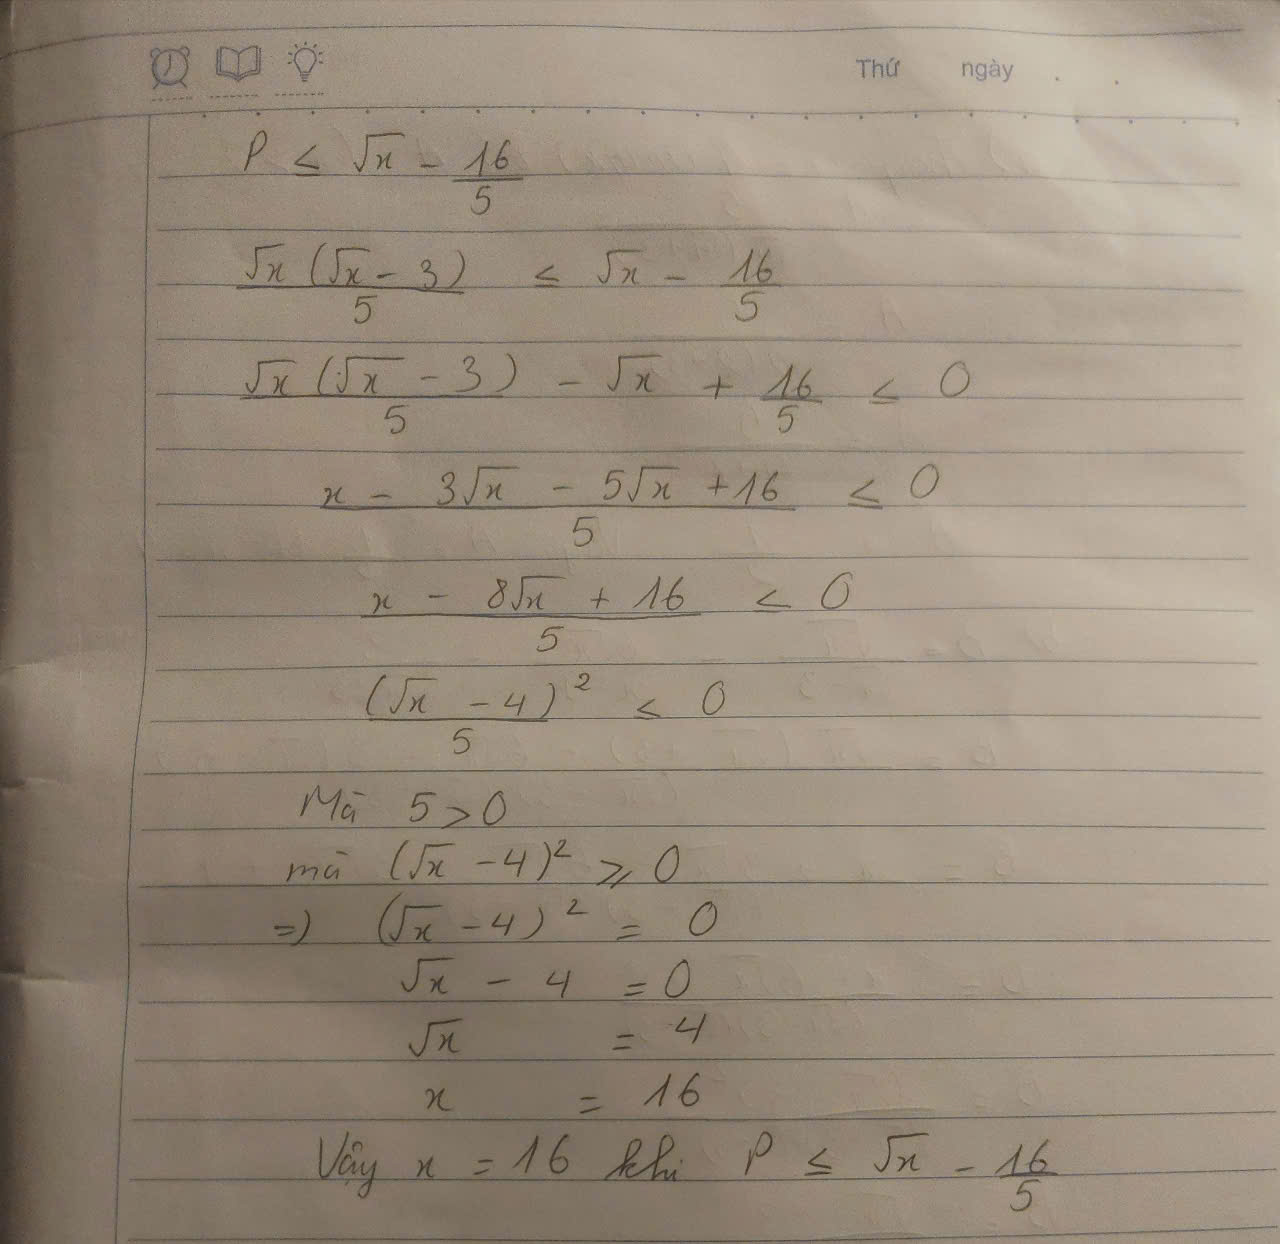 Thứ ngày
P ≤ √x - 16/5
√x (√x - 3)/5 ≤ √x - 16/5
√x (√x - 3)/5 - √x + 16/5 ≤ 0
(x - 3√x - 5√x + 16)/5 ≤ 0
(x - 8√x + 16)/5 ≤ 0
(√x - 4)²/5 ≤ 0
Mà 5 > 0
mà (√x - 4)² ≥ 0
=) (√x - 4)² = 0
√x - 4 = 0
√x = 4
x = 16
Vậy x = 16 khi P ≤ √x - 16/5